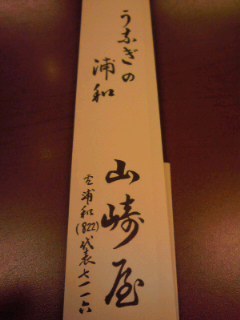 うなぎの
浦和
山崎屋
電浦和(822)代表七一一六